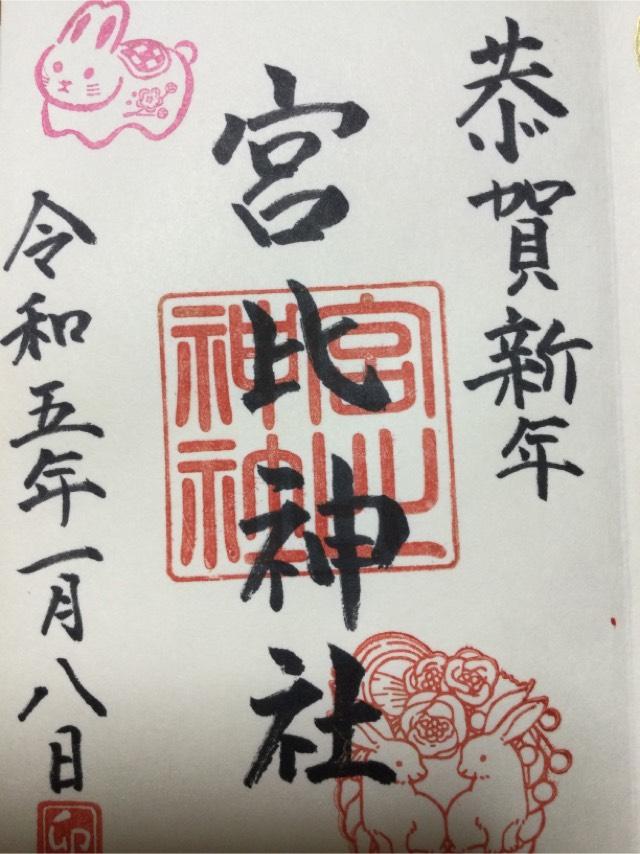 恭賀新年
宮比神社
令和五年一月八日
卯